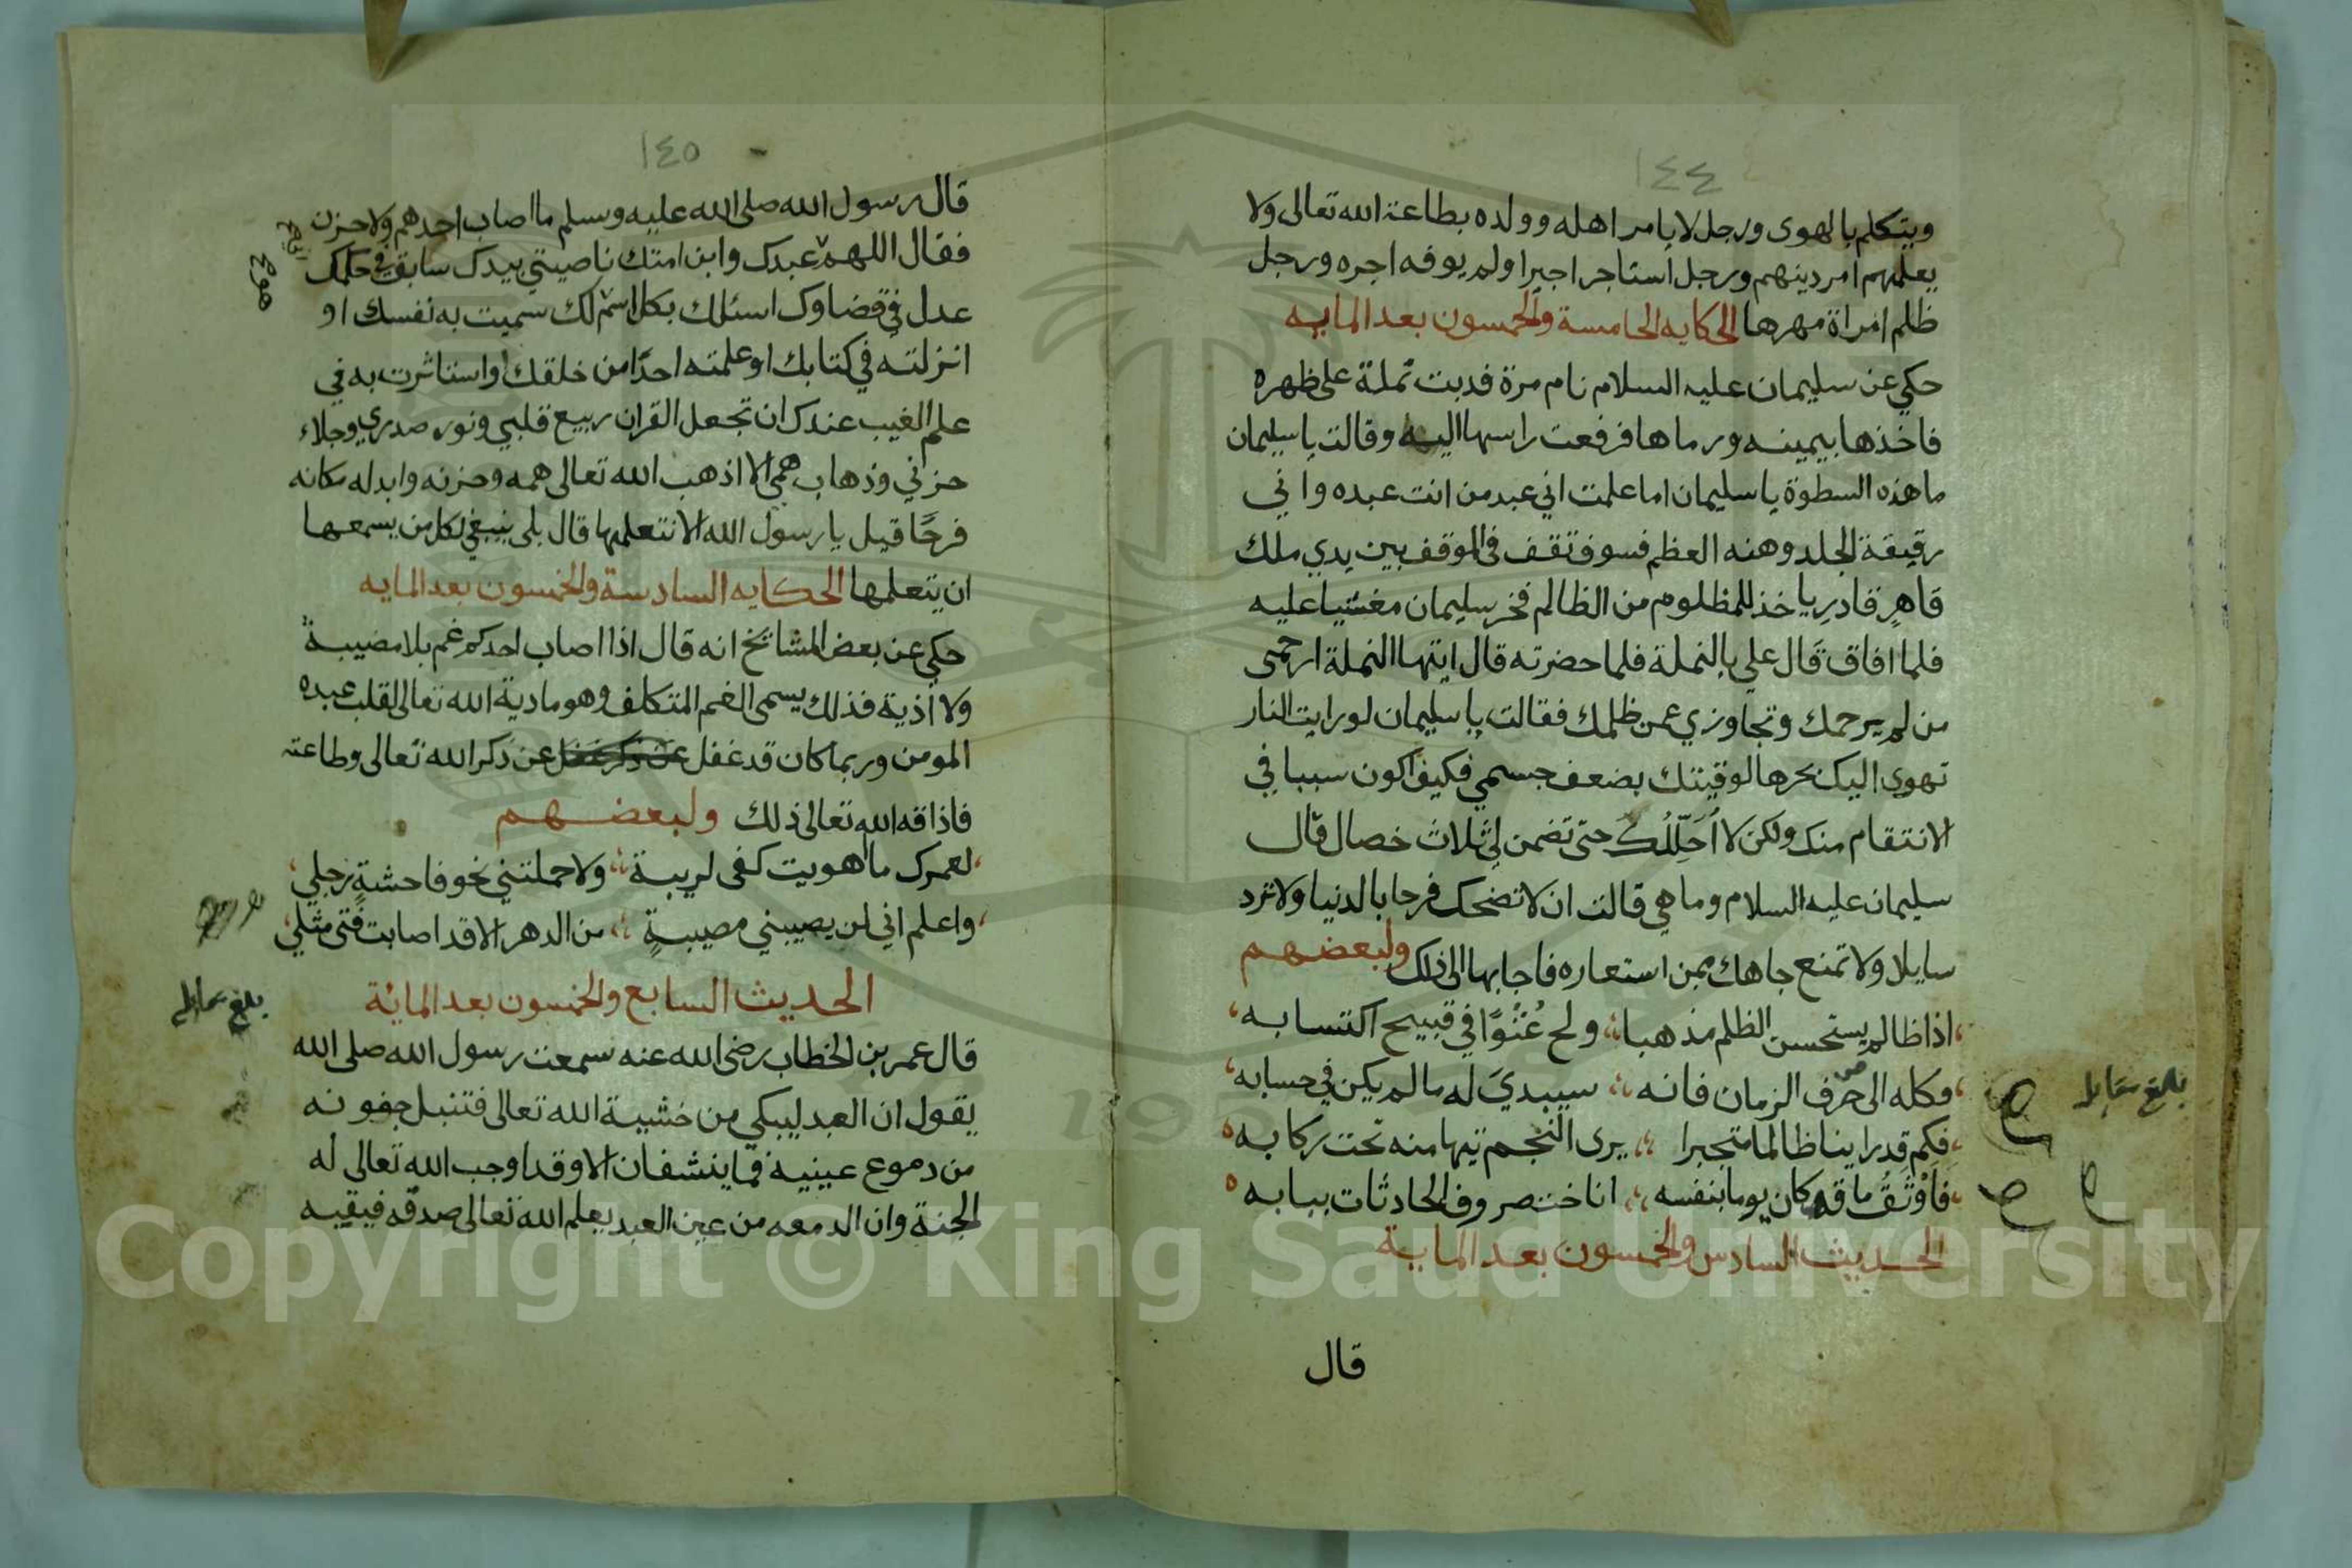 ١٤٤
ويتكلم بالهوى ورجل لا يامر اهله وولده بطاعة الله تعالى ولا
يعلمهم امر دينهم ورجل استاجر اجيرا ولم يوفه اجره ورجل
ظلم امراة مهرها الحكايه الخامسة والخمسون بعد المايه
حكي عن سليمان عليه السلام نام مرة فدبت نملة على ظهره
فاخذها بيمينه ورماها فرفعت راسها اليه وقالت يا سليمان
ما هذه السطوة يا سليمان اما علمت اني عبد من انت عبده واني
رقيقة الجلد وهنه العظم فسوف تقف في الموقف بين يدي ملك
قاهر قادر ياخذ للمظلوم من الظالم فخر سليمان مغشيا عليه
فلما افاق قال علي بالنملة فلما حضرته قال ايتها النملة ارحمي
من لم يرحمك وتجاوزي عمن ظلمك فقالت يا سليمان لو رايت النار
تهوي اليك بحرها لوقيتك بضعف جسمي فكيف اكون سببا في
الانتقام منك ولكن لا اُحَلِّلُك حتى تضمن لي ثلاث خصال قال
سليمان عليه السلام وما هي قالت ان لا تضحك فرحا بالدنيا ولا ترد
سايلا ولا تمنع جاهك ممن استعاره فاجابها الى ذلك ولبعضهم
اذا ظالم يستحسن الظلم مذهبا ولح عُتُوًّا في قبيح اكتسابه
فكله الى صرف الزمان فانه سيبدي له ما لم يكن في حسابه
فكم قد راينا ظالما متجبرا يرى النجم تيها منه تحت ركابه
فَاَوْثَقُ ما قد كان يوما بنفسه اناخت صروف الحادثات ببابه
الحديث السادس والخمسون بعد الماية
قال
١٤٥
قال رسول الله صلى الله عليه وسلم ما اصاب احدهم ولا حزن
فقال اللهم عبدك وابن امتك ناصيتي بيدك سابق في حكمك
عدل في قضاوك اسئلك بكل اسم لك سميت به نفسك او
انزلته في كتابك او علمته احدًا من خلقك او استاثرت به في
علم الغيب عندك ان تجعل القران ربيع قلبي ونور صدري وجلاء
حزني وذهاب همي الا اذهب الله تعالى همه وحزنه وابدله مكانه
فرحًا قيل يا رسول الله الا نتعلمها قال بلى ينبغي لكل من يسمعها
ان يتعلمها الحكايه السادسة والخمسون بعد المايه
حكي عن بعض المشايخ انه قال اذا اصاب احدكم غم بلا مصيبة
ولا اذية فذلك يسمى الغم المتكلف وهو مادية الله تعالى لقلب عبده
المومن وربما كان قد غفل عن ذكر الله تعالى وطاعته
فاذاقه الله تعالى ذلك ولبعضهم
لعمرك ما هويت كفى لريبة ولا حملتني نحو فاحشةٍ رجلي
واعلم اني لن يصيبني مصيبةٍ من الدهر الا قد اصابت فتى مثلي
الحديث السابع والخمسون بعد المائة
قال عمر بن الخطاب رضى الله عنه سمعت رسول الله صلى الله
يقول ان العبد ليبكي من خشية الله تعالى فتنبل جفونه
من دموع عينيه فما ينشفان الا وقد اوجب الله تعالى له
الجنة وان الدمعه من عين العبد يعلم الله تعالى صدقه فيقيه
Copyright © King Saud University